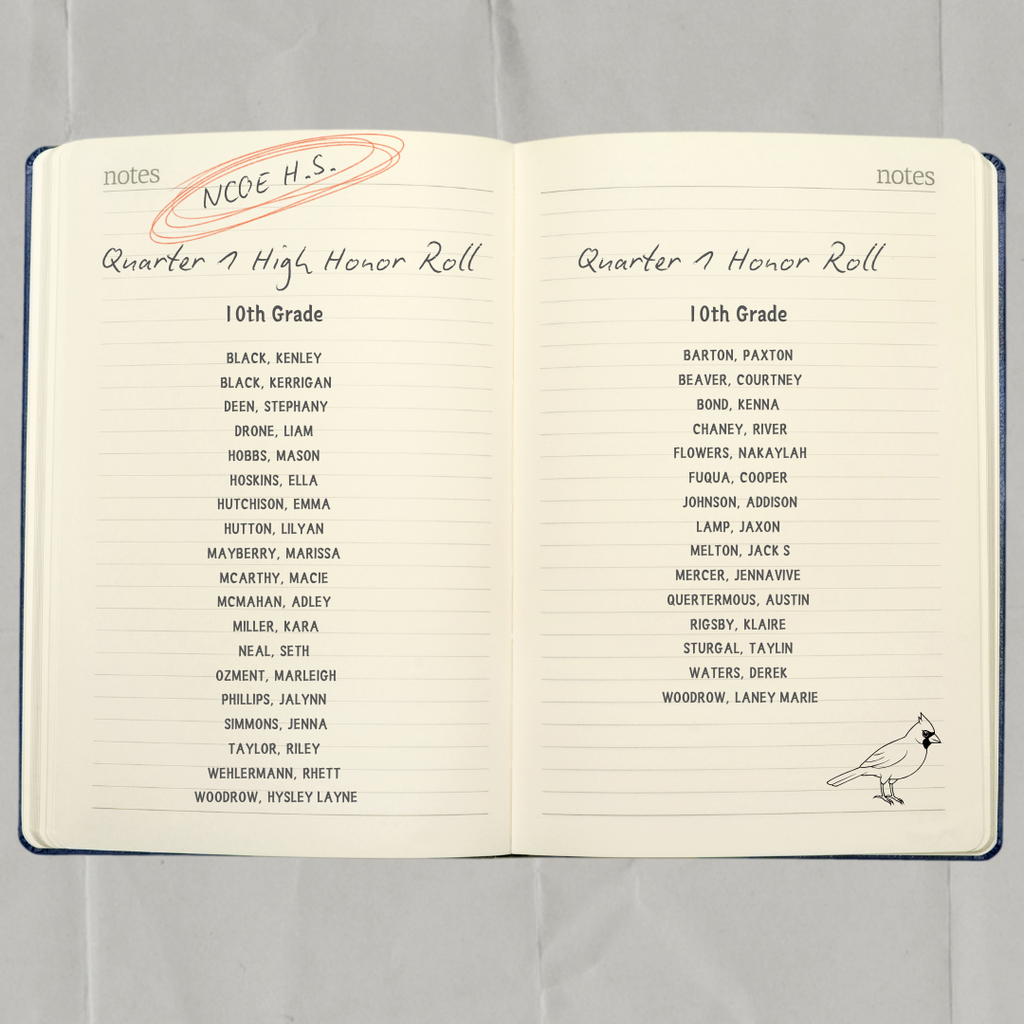 notes
NCOE H.S.
Quarter 1 High Honor Roll
10th Grade
BLACK, KENLEY
BLACK, KERRIGAN
DEEN, STEPHANY
DRONE, LIAM
HOBBS, MASON
HOSKINS, ELLA
HUTCHISON, EMMA
HUTTON, LILYAN
MAYBERRY, MARISSA
MCARTHY, MACIE
MCMAHAN, ADLEY
MILLER, KARA
NEAL, SETH
OZMENT, MARLEIGH
PHILLIPS, JALYNN
SIMMONS, JENNA
TAYLOR, RILEY
WEHLERMANN, RHETT
WOODROW, HYSLEY LAYNE
notes
Quarter 1 Honor Roll
10th Grade
BARTON, PAXTON
BEAVER, COURTNEY
BOND, KENNA
CHANEY, RIVER
FLOWERS, NAKAYLAH
FUQUA, COOPER
JOHNSON, ADDISON
LAMP, JAXON
MELTON, JACK S
MERCER, JENNAVIVE
QUERTERMOUS, AUSTIN
RIGSBY, KLAIRE
STURGAL, TAYLIN
WATERS, DEREK
WOODROW, LANEY MARIE